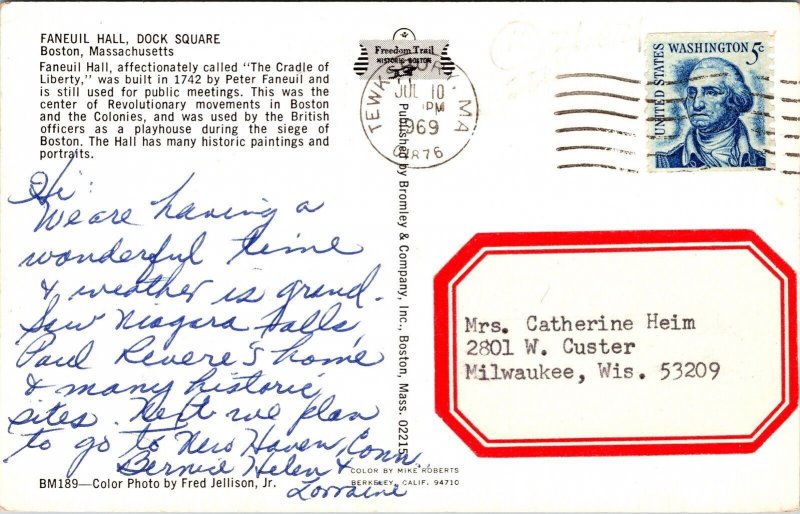 FANEUIL HALL, DOCK SQUARE
Boston, Massachusetts
Faneuil Hall, affectionately called "The Cradle of
Liberty," was built in 1742 by Peter Faneuil and
is still used for public meetings. This was the
center of Revolutionary movements in Boston
and the Colonies, and was used by the British
officers as a playhouse during the siege of
Boston. The Hall has many historic paintings and
portraits.
Hi:
We are having a
wonderful time
& weather is grand.
Saw Niagara Falls,
Paul Revere's home
& many historic
sites. Next we plan
to go to New Haven, Conn.
Bernice Helen &
Lorraine
BM189—Color Photo by Fred Jellison, Jr.
Freedom Trail
HISTORIC BOSTON
TEWKSBURY, MA
JUL 10
PM
1969
01876
Published by Bromley & Company, Inc., Boston, Mass. 02215
COLOR BY MIKE ROBERTS
BERKELEY, CALIF. 94710
UNITED STATES
WASHINGTON 5c
Mrs. Catherine Heim
2801 W. Custer
Milwaukee, Wis. 53209